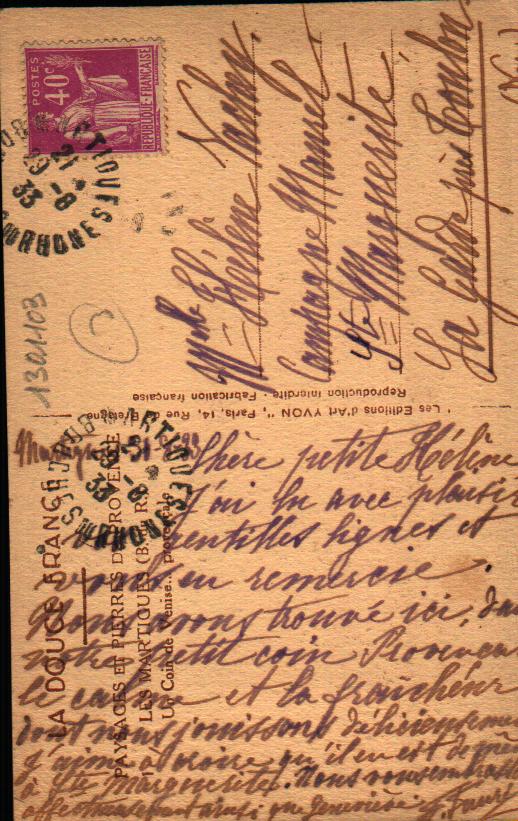 POSTES
40c
REPUBLIQUE-FRANÇAISE
MARTIGUES
21-8
33
DU RHONE
1301103
Melle Hélène
Campagne
Ste Marguerite
La Garde près Toulon
"Les Editions d'Art YVON", Paris, 14, Rue de Bretagne
Reproduction interdite - Fabrication française
LA DOUCE FRANCE
PAYSAGES ET PIERRES DE PROVENCE
LES MARTIGUES (B.-D.-R.)
Un Coin de Venise... provençale
MARTIGUES
33
DU RHONE
Chère petite Hélène
J'ai lu avec plaisir
gentilles lignes et
vous en remercie.
Nous avons trouvé ici, dans
notre petit coin Provença
le calme et la fraîcheur
dont nous jouissons délicieusement
J'aime à croire qu'il en est de même
à Ste Marguerite. Nous vous embrass
affectueusement ainsi que Geneviève.